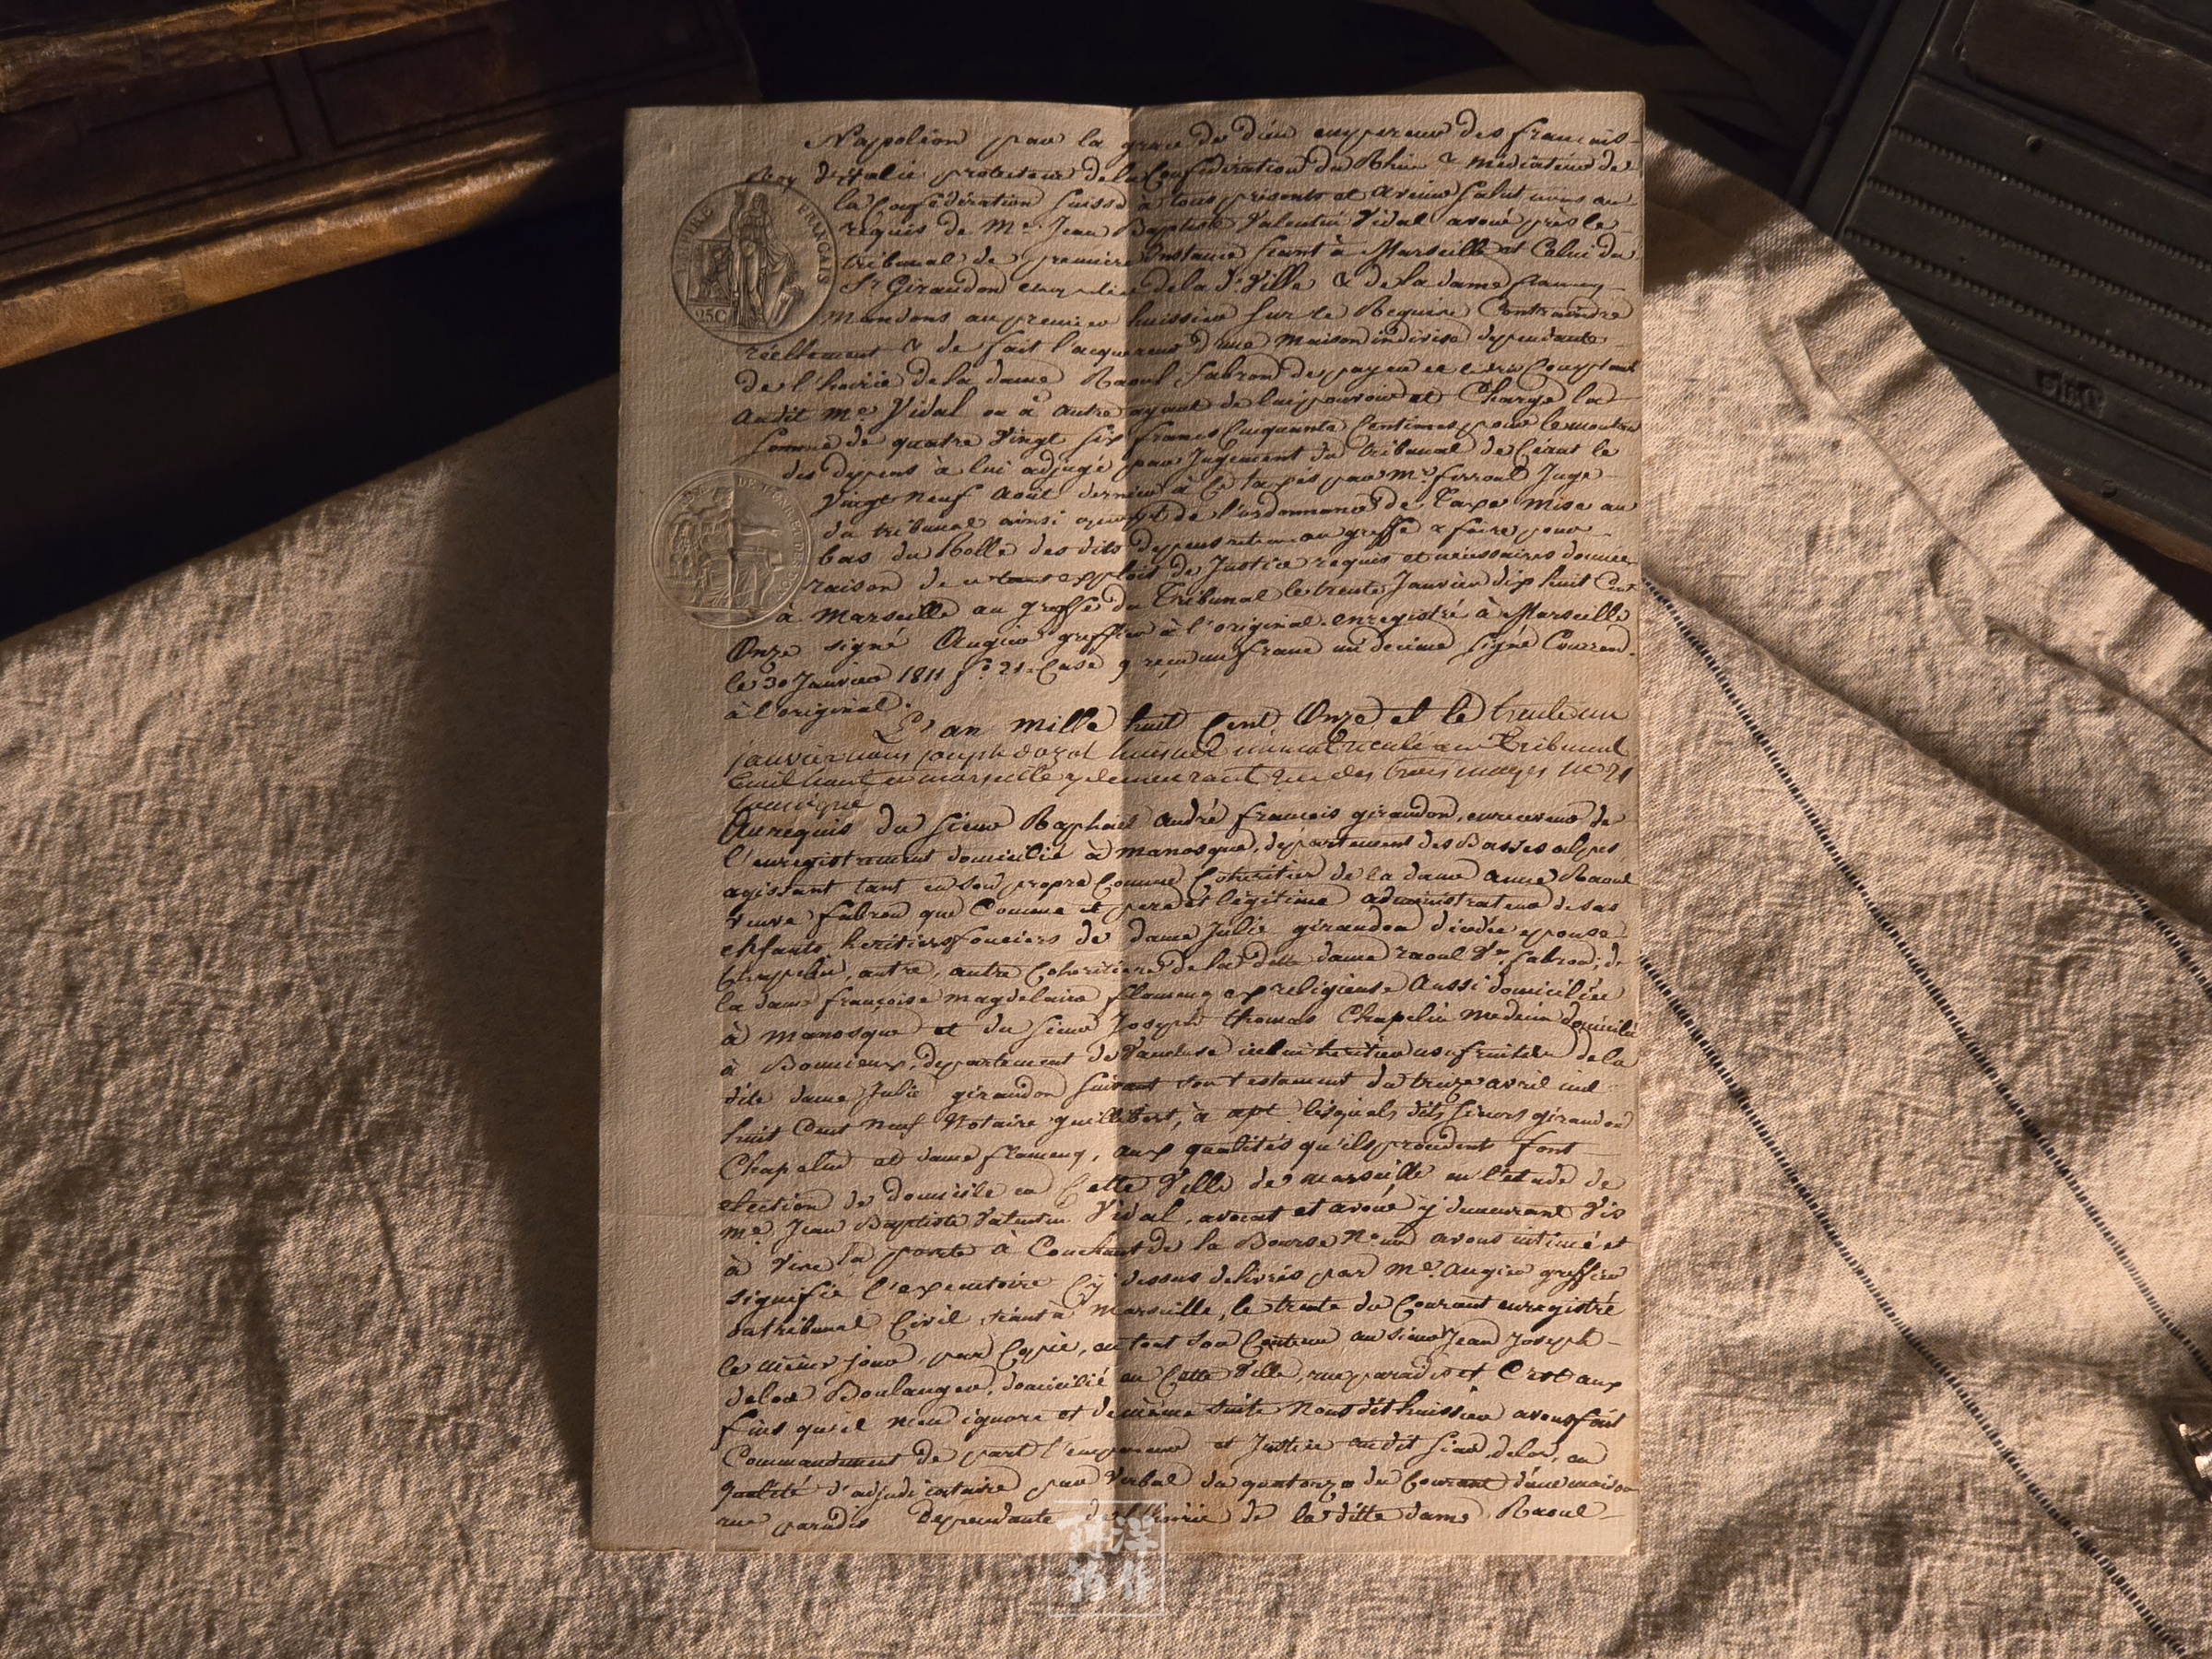 Napoléon par la grace de dieu empereur des francais
Roy d'italie protecteur de la Confédération du Rhin & médiateur de
la Confédération Suisse à tous présents et avenir salut
requis de Me. Jean Baptiste Valentin Vidal avoué près le
tribunal de premiere Instance séant à Marseille et Celui du
Sr. Giraudon de la d. Ville & de la dame flameng
mandons au premier huissier sur ce Requis Contraindre
réellement & de fait l'acquereur d'une maison indivise dependante
de l'hoirie de la dame Raoul fabron de payer
audit me Vidal ou à autre ayant de lui pouvoir et Charge la
somme de quatre vingt six francs Cinquante Centimes pour le montant
des dépens à lui adjugé par Jugement du tribunal de Céant le
vingt neuf août dernier Juge
du tribunal ainsi de l'ordonnance de Taxe mise au
bas du Rolle des dits dépens au greffe & faire pour
raison de ce tout exploit de Justice requis et nécessaires donné
à Marseille au greffe du Tribunal le trente Janvier dix huit Cent
Onze signé Augier greffier à l'original. enregistré à Marseille
le 30 Janvier 1811 fo. 21. Case 9 reçu un franc un décime signé
à l'original.
L'an mille huit Cent Onze et le trente un
janvier nous joseph huissier immatriculé au Tribunal
Civil séant à marseille y demeurant rue des trois mages no 21
soussigné
Au requis du sieur Raphaël andré francois giraudon, receveur de
l'enregistrement domicilié à manosque, département des Basses alpes
agissant tant en son propre Comme Cohéritier de la dame anne Raoul
veuve fabron que Comme pere et légitime administrateur de ses
enfants héritiers fonciers de dame Julie giraudon décédée epouse
Chapelin, autre, autre Cohéritiere de la ditte dame raoul Ve. fabron, de
la dame françoise magdelaine flameng ex religieuse Aussi domiciliée
à manosque et du sieur Joseph thomas Chapelin medecin domicilié
à Bonnieux, département de Vaucluse héritier usufruitier de la
dite dame Julie giraudon suivant son testament du treize avril mil
huit Cent neuf Notaire guillibert, à apt lesquels dits sieurs giraudon
Chapelin et dame flameng, aux qualités qu'ils procedent font
election de domicile en Cette Ville de marseille en l'étude de
me. Jean Baptiste Valentin Vidal, avocat et avoué y demeurant Vis
à Vis la porte à Couchant de la Bourse No un avons intimé et
signifié l'exécutoire Cy dessus délivrés par me. Augier greffier
du tribunal Civil, séant à Marseille, le trente du Courant enregistré
le même jour, par Copie, en tout son Contenu au sieur Jean Joseph
delor Boulanger, domicilié en Cette Ville, rue paradis et C'est aux
fins qu'il n'en ignore et de même suite Nous dit huissier avons fait
Commandement de part l'empereur et Justice audit sieur delor, en
qualité d'adjudicataire par verbal du quatorze du Courant d'une maison
rue paradis Dependante de l'hoirie de la ditte dame Raoul
EMPIRE FRANÇAIS
25C